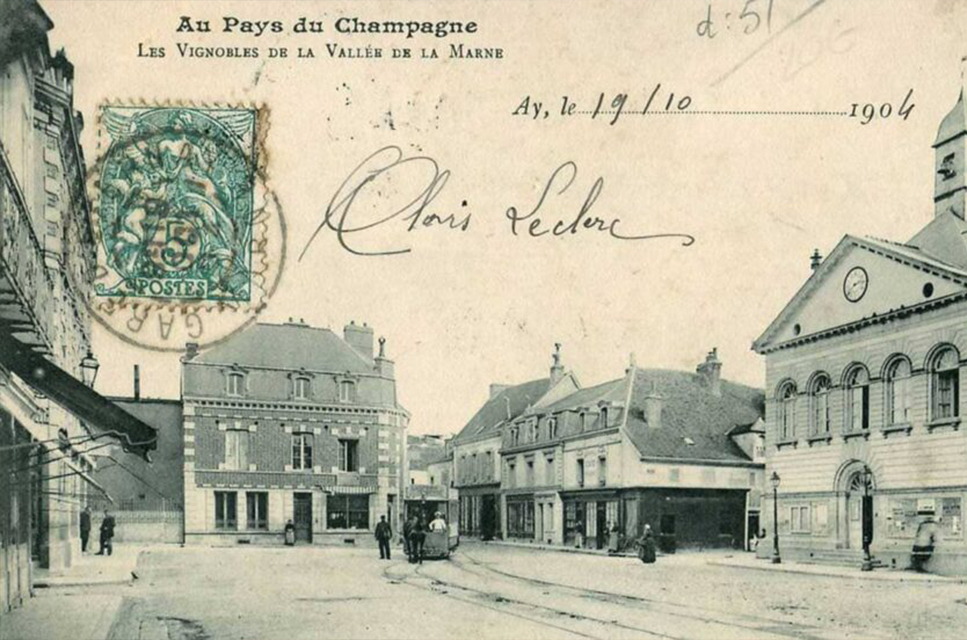 Au Pays du Champagne
LES VIGNOBLES DE LA VALLÉE DE LA MARNE
d: 51
Ay, le 19/10 1904
Clovis Leclerc
5
POSTES
GARE